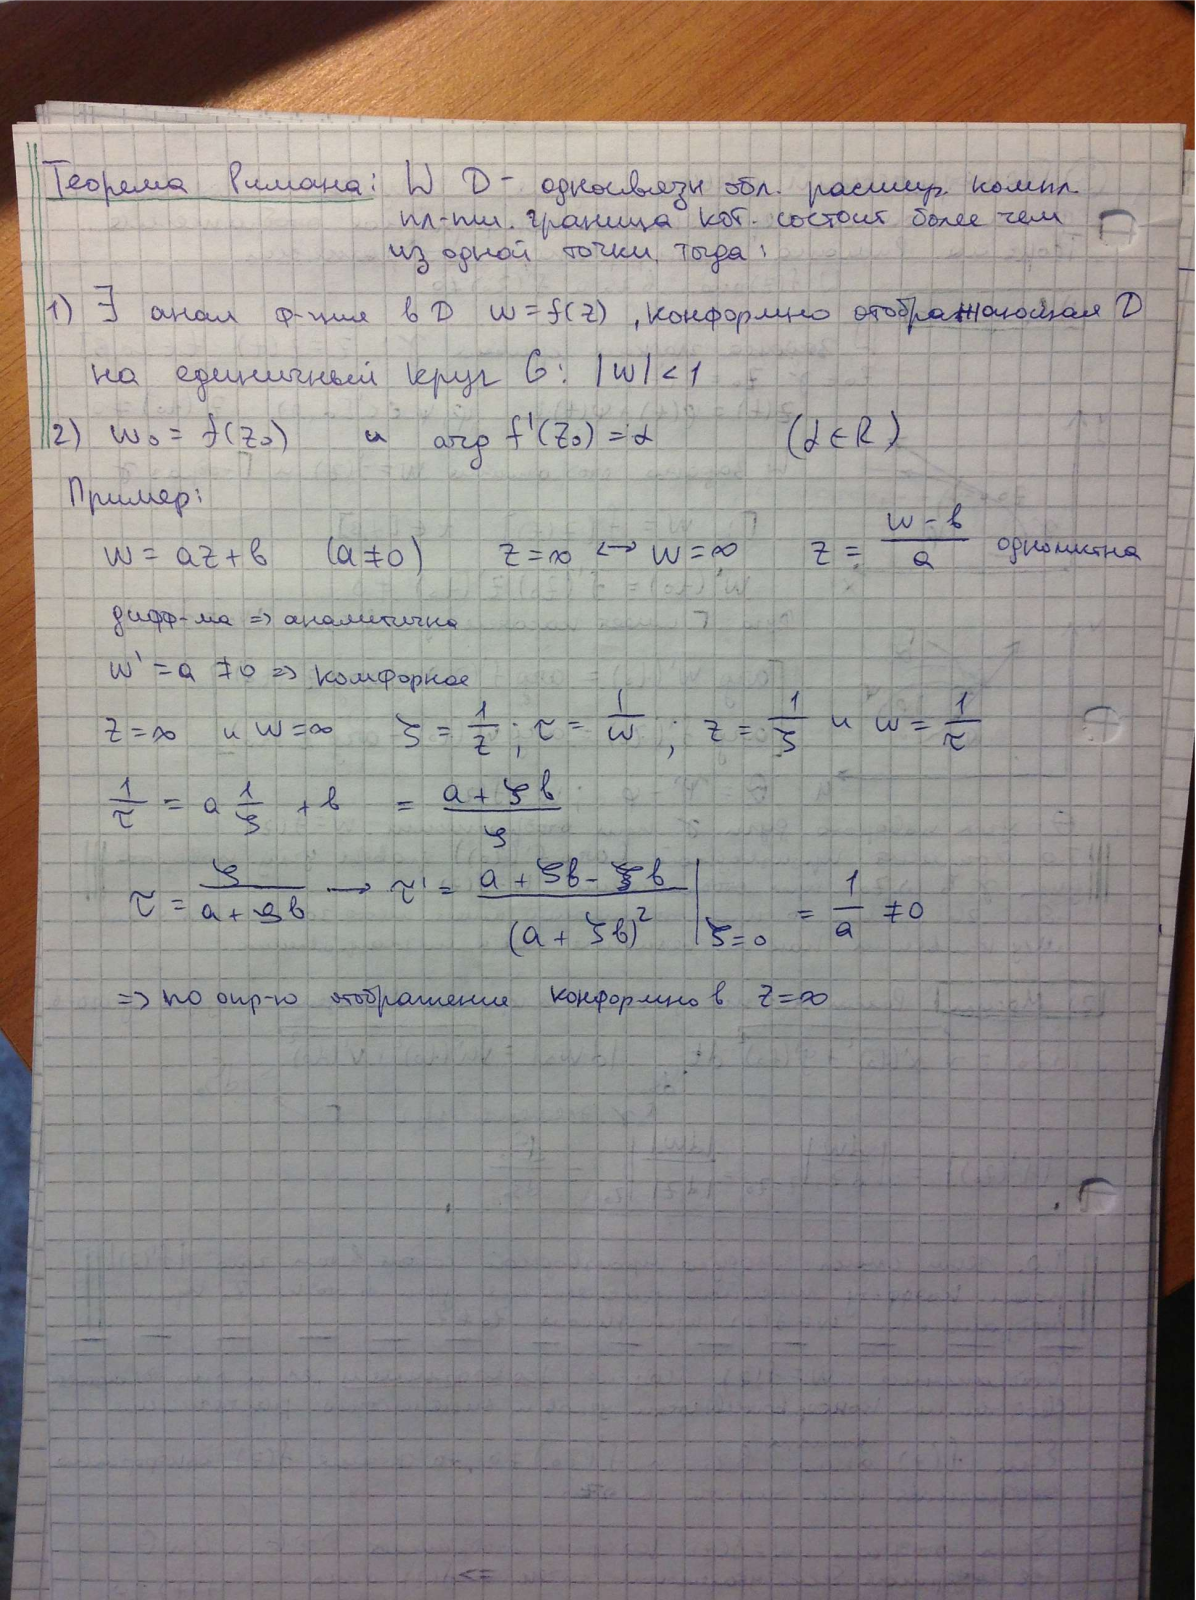 Теорема Римана: Ы D - односвязн обл. расшир. компл.
пл-ти. граница кот. состоит более чем
из одной точки тогда:
1) ∃ анал ф-ция в D w = f(z), конформно отображающая D
на единичный круг G: |w| < 1
2) w₀ = f(z₀) и arg f'(z₀) = α (α ∈ R)
Пример:
w = az + b (a ≠ 0) z = ∞ ↔ w = ∞ z = (w - b)/a однолистна
дифф-ма ⇒ аналитична
w' = a ≠ 0 ⇒ комфорное
z = ∞ и w = ∞ ζ = 1/z ; τ = 1/w ; z = 1/ζ и w = 1/τ
1/τ = a 1/ζ + b = (a + ζb)/ζ
τ = ζ/(a + ζb) → τ' = (a + ζb - ζb)/(a + ζb)² |ζ=0 = 1/a ≠ 0
⇒ по опр-ю отображение конформно в z = ∞